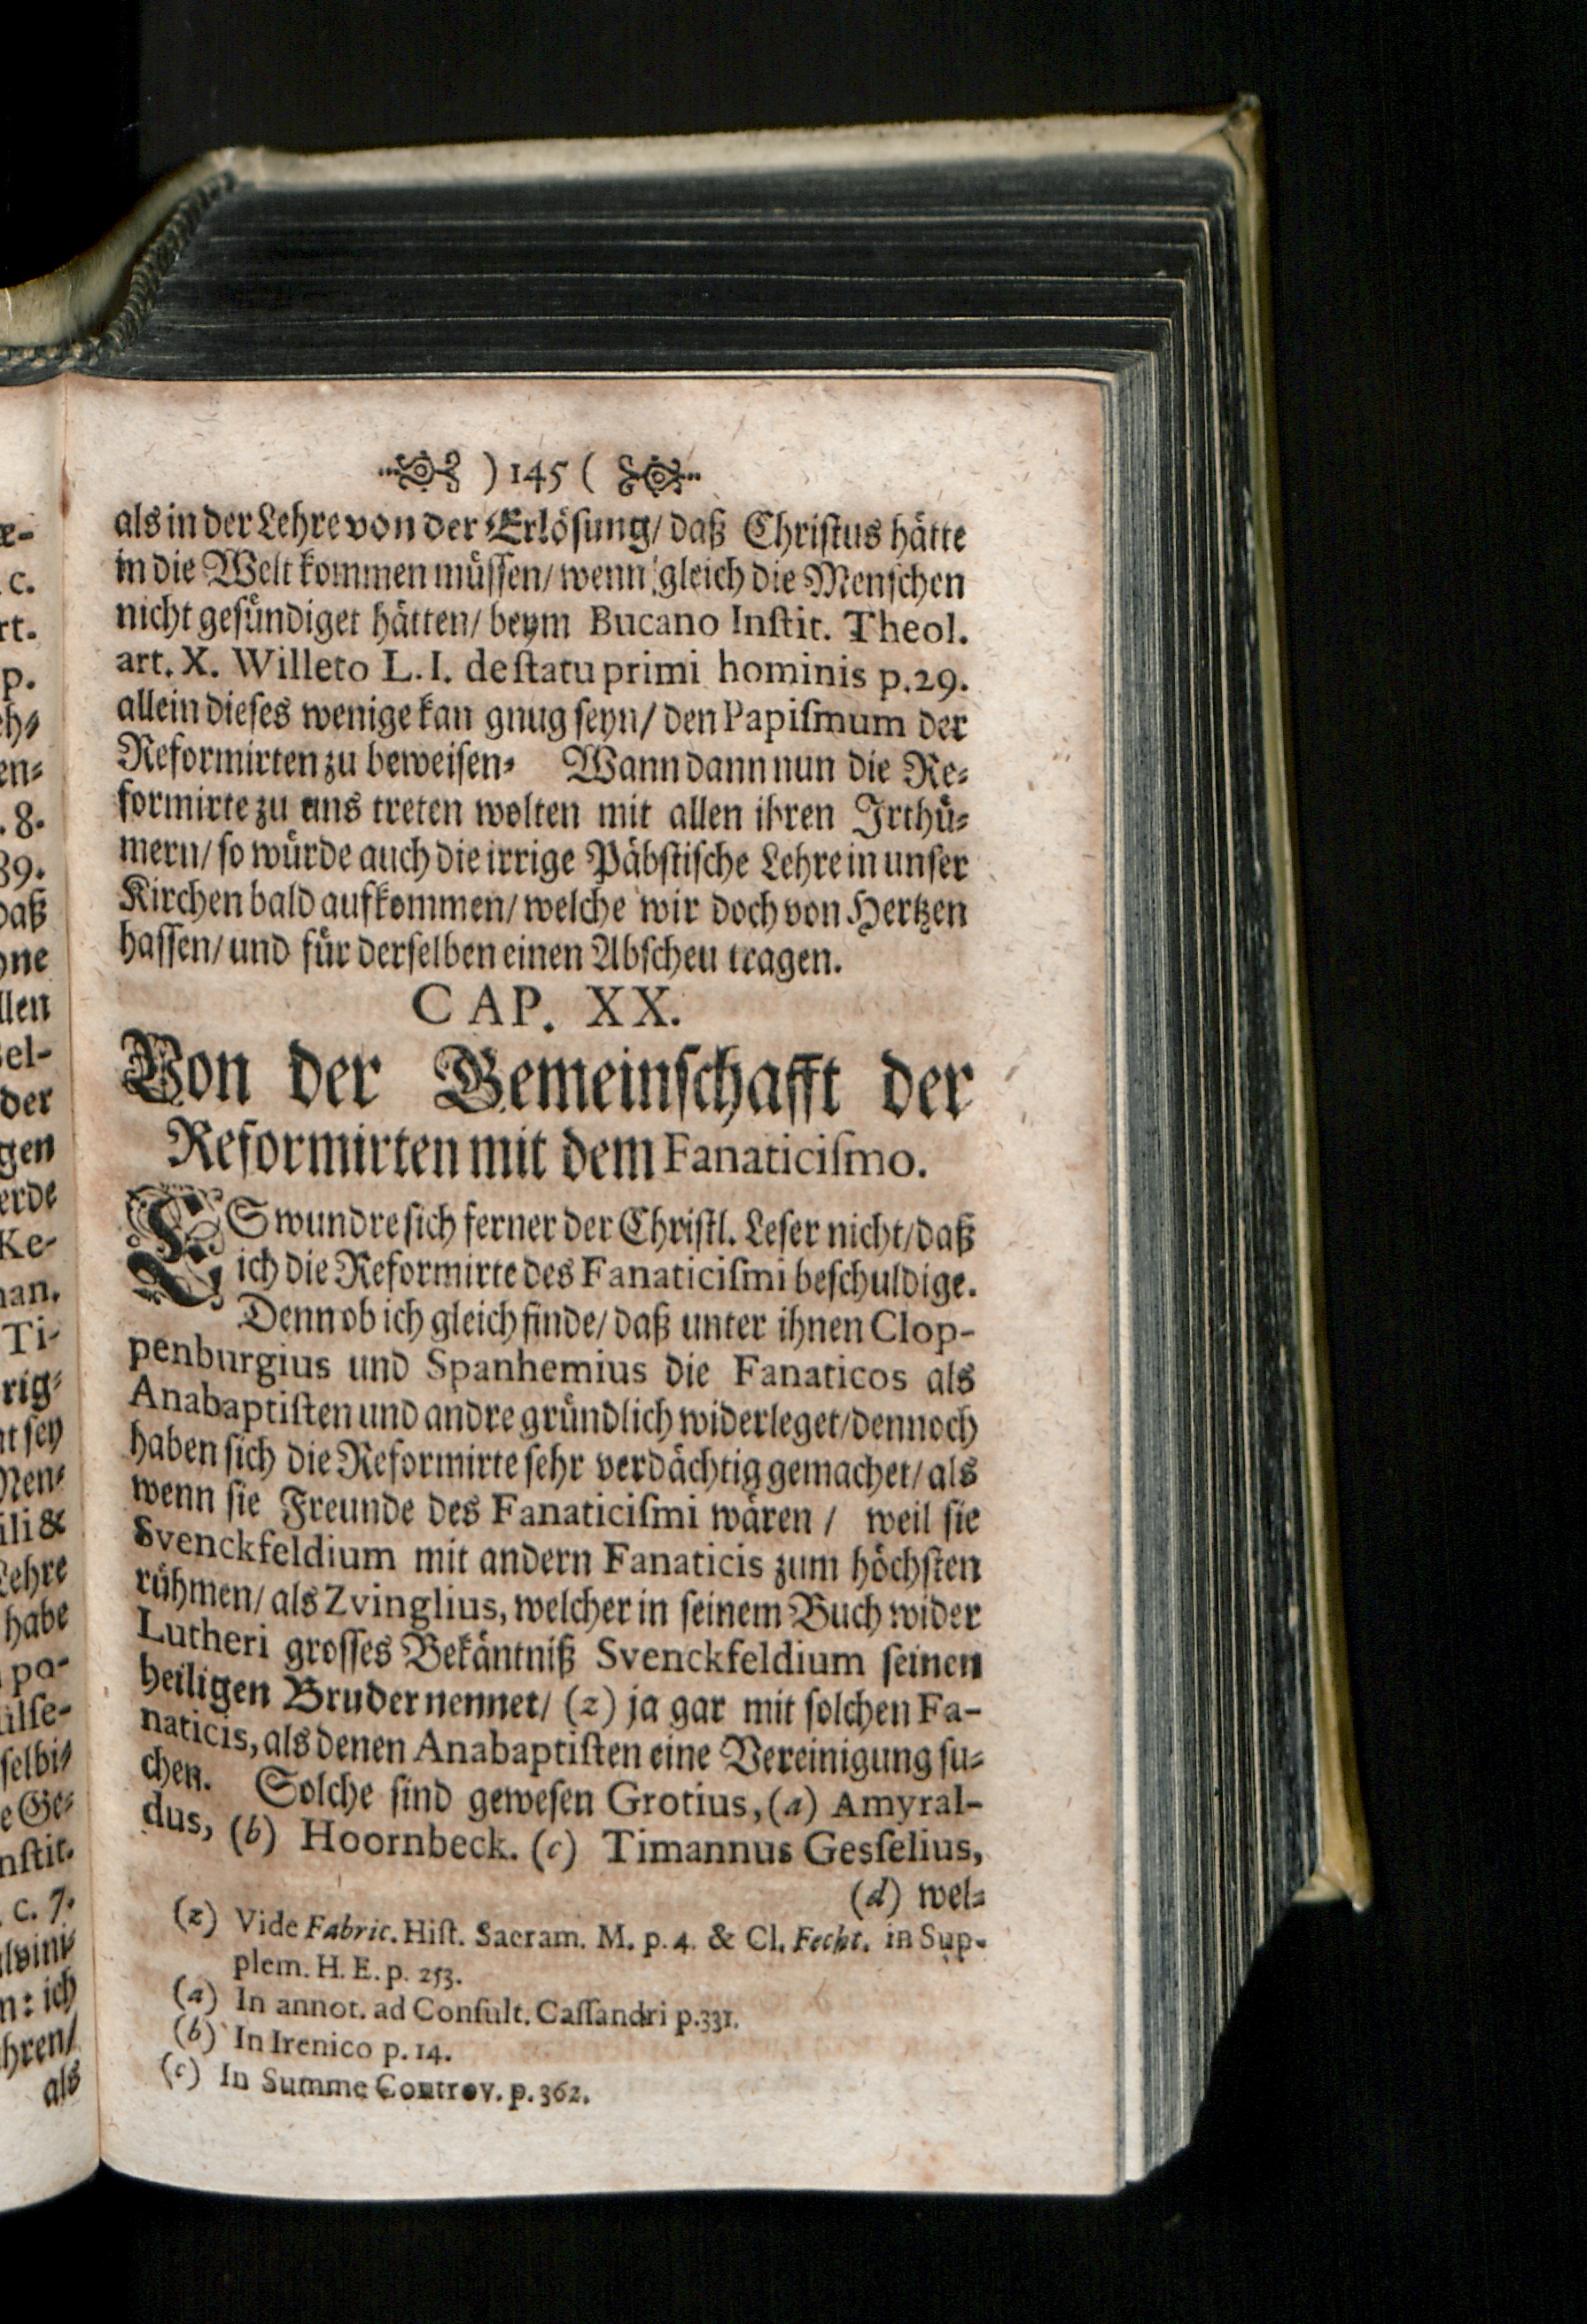 ) 145 (
als in der Lehre von der Erlösung/ daß Christus hätte
in die Welt kommen müssen/ wenn gleich die Menschen
nicht gesündiget hätten/ beym Bucano Instit. Theol.
art. X. Willeto L. I. de statu primi hominis p. 29.
allein dieses wenige kan gnug seyn/ den Papismum der
Reformirten zu beweisen. Wann dann nun die Re-
formirte zu uns treten wolten mit allen ihren Irthü-
mern/ so würde auch die irrige Päbstische Lehre in unser
Kirchen bald aufkommen/ welche wir doch von Hertzen
hassen/ und für derselben einen Abscheu tragen.
CAP. XX.
Von der Gemeinschafft der
Reformirten mit dem Fanaticismo.
ES wundre sich ferner der Christl. Leser nicht/ daß
ich die Reformirte des Fanaticismi beschuldige.
Denn ob ich gleich finde/ daß unter ihnen Clop-
penburgius und Spanhemius die Fanaticos als
Anabaptisten und andre gründlich widerleget/ dennoch
haben sich die Reformirte sehr verdächtig gemachet/ als
wenn sie Freunde des Fanaticismi wären / weil sie
Svenckfeldium mit andern Fanaticis zum höchsten
rühmen/ als Zvinglius, welcher in seinem Buch wider
Lutheri grosses Bekäntniß Svenckfeldium seinen
heiligen Bruder nennet/ (z) ja gar mit solchen Fa-
naticis, als denen Anabaptisten eine Vereinigung su-
chen. Solche sind gewesen Grotius, (a) Amyral-
dus, (b) Hoornbeck. (c) Timannus Gesselius,
(d) wel-
(z) Vide Fabric. Hist. Sacram. M. p. 4. & Cl. Fecht. in Sup-
plem. H. E. p. 253.
(a) In annot. ad Consult. Cassandri p. 331.
(b) In Irenico p. 14.
(c) In Summe Controv. p. 362.